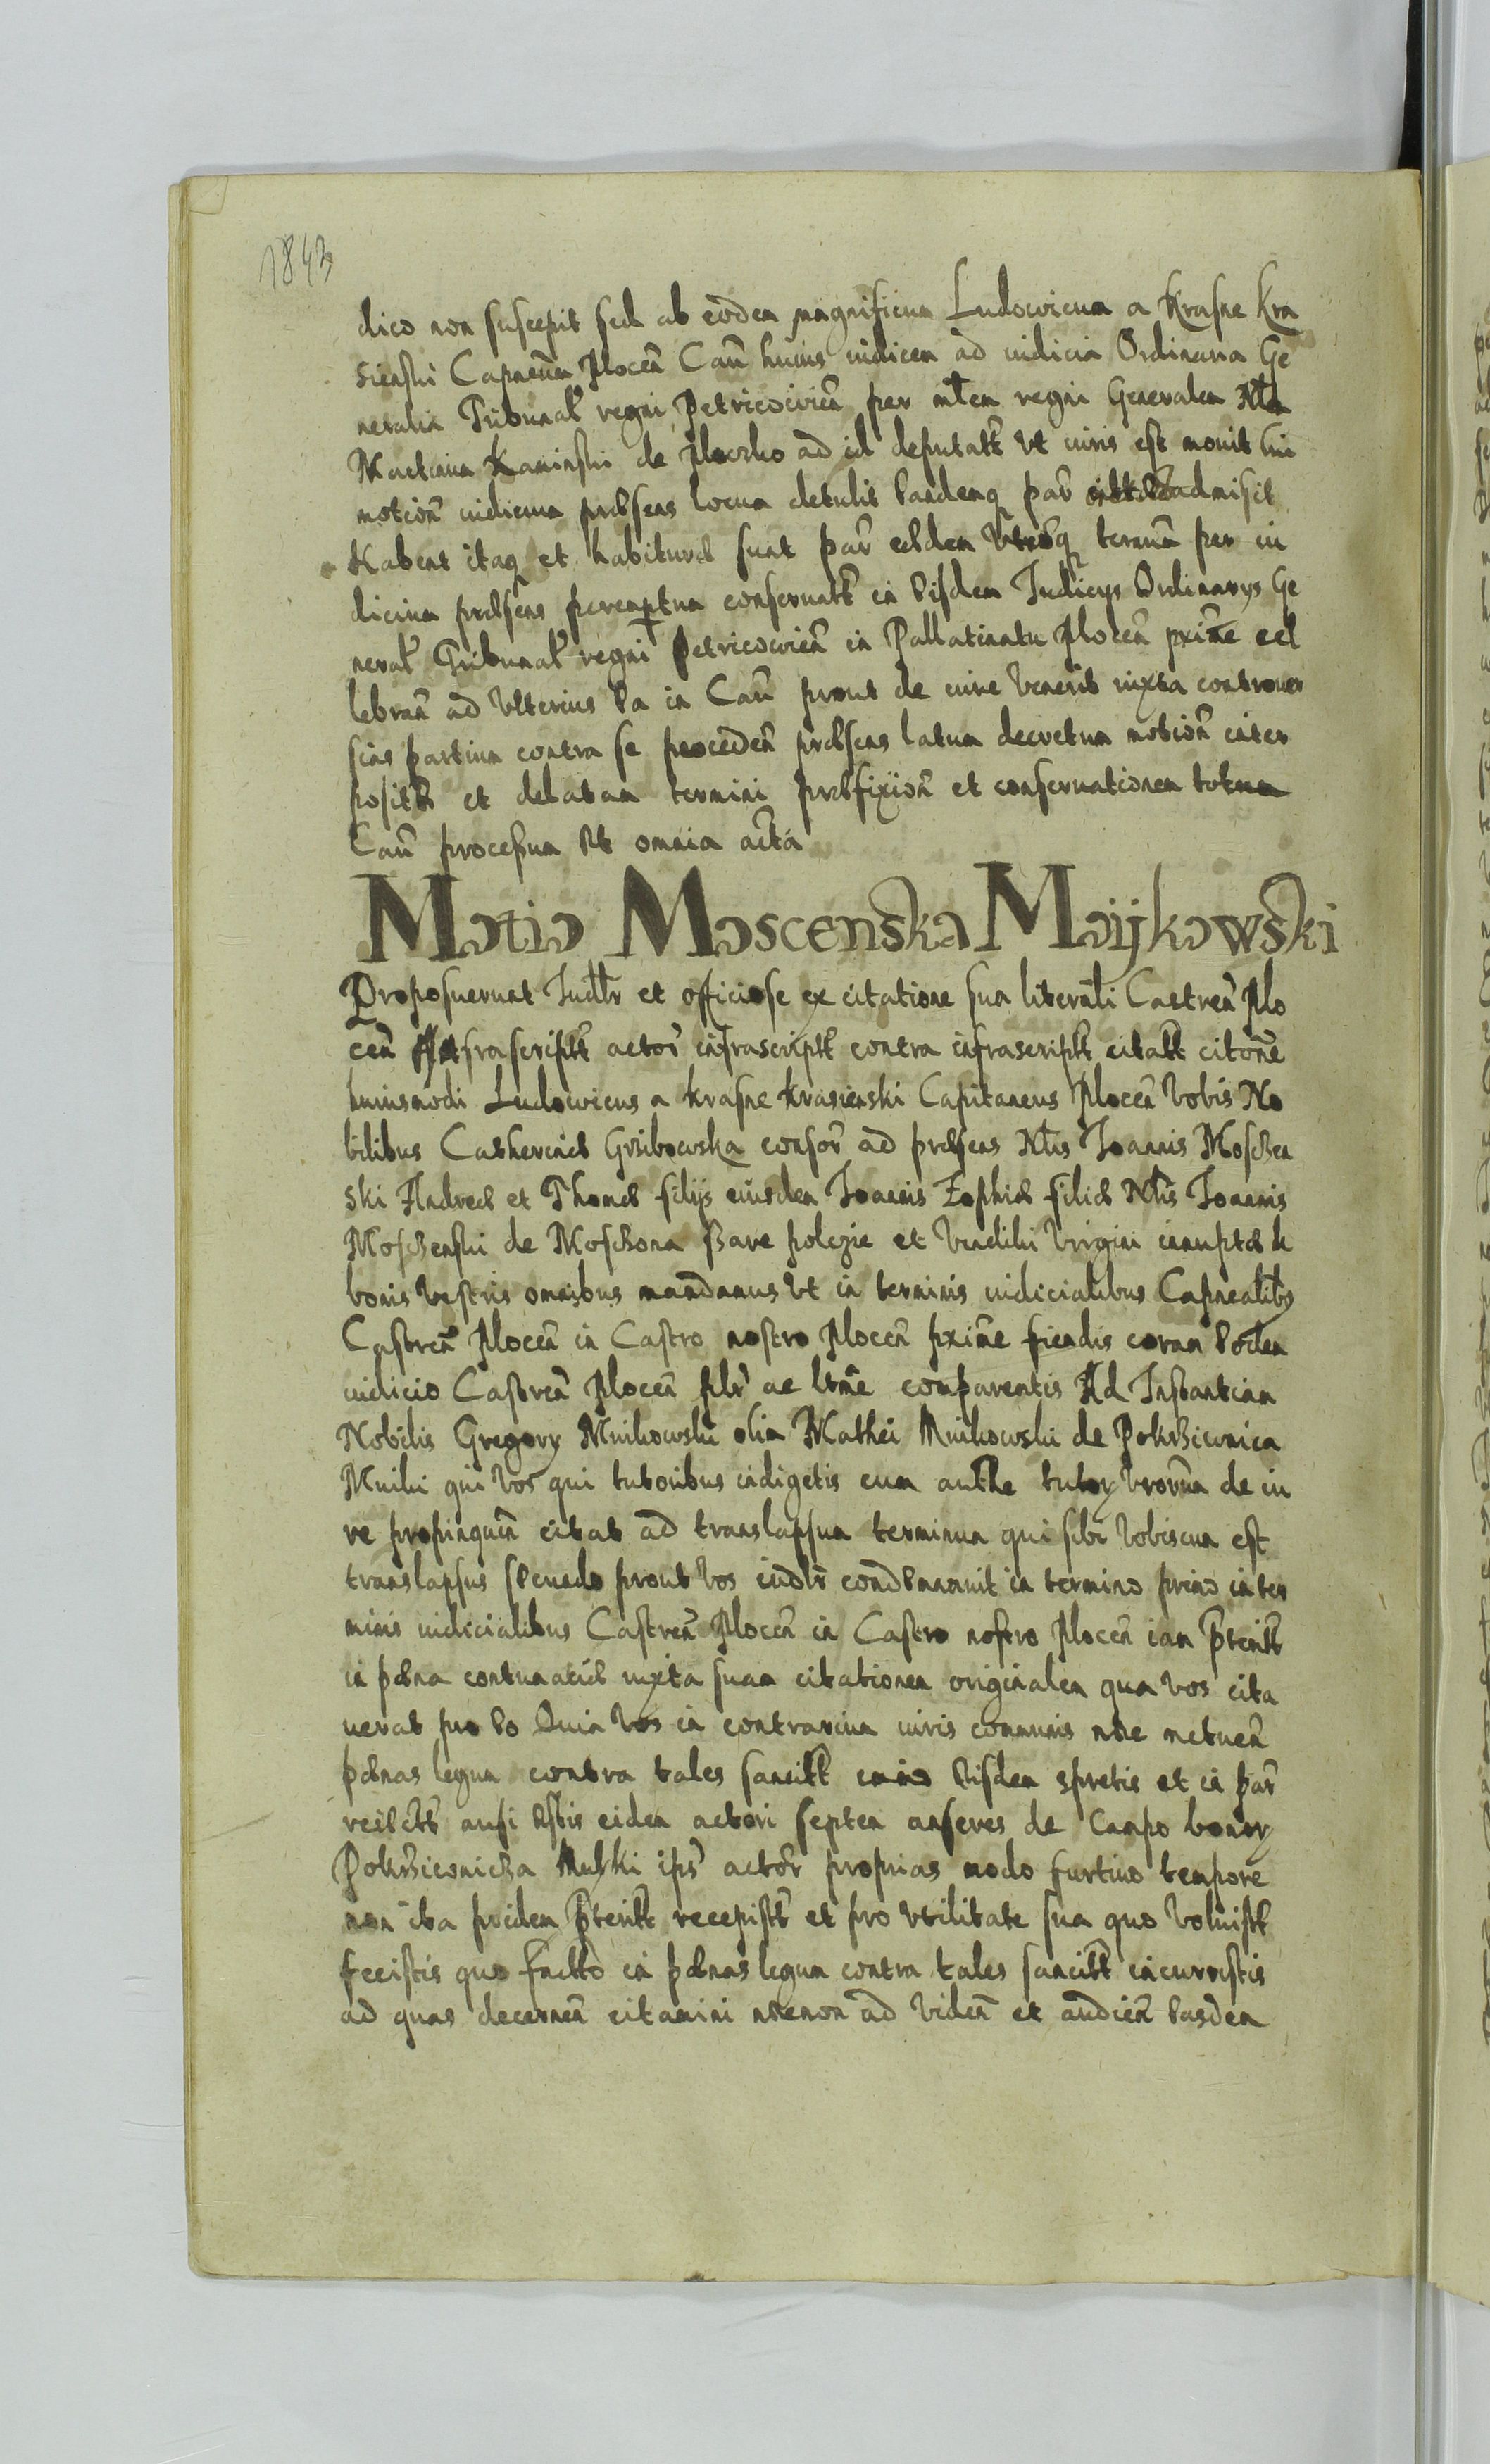 1843
dico non suscepit sed ab eodem magnificum Ludowicum a Krasne Kra
sienski Capneum Plocen Cau huius iudicem ad iudicia Ordinaria Ge
neralia Tribunal regni Petricovien per mtem regni Generalem Nlem
Martinum Kaminski de Ploczko ad id deputatt ut iuris est monit cui
motion iudicium præsens locum detulit eandemq par admisit
Habent itaq et habituræ sunt par eædem utræq termin per iu
dicium præsens peremptum conservatt in eisdem Judicijs Ordinarijs Ge
neral Tribunal regni Petricowien in Pallatinatu Plocen pxime cel
lebran ad ulterius ea in Cau prout de iure venerit iuxta controver
sias partium contra se proceden præsens latum decretum motion inter
positt et delatam termini præfixion et conservationem totum
Cau processum et omnia acta
Motio Moscenska Mijkowski
Proposuerunt Judlr et officiose ex citatione sua literali Castren Plo
cen infrascriptt actor infrascriptt contra infrascriptt citatt citone
huiusmodi Ludowicus a Krasne Krasienski Capitaneus Plocen vobis No
bilibus Catherinæ Grzibowska consor ad præsens Nlis Joannis Moschen
ski Andreæ et Thomæ filijs eiusdem Joannis Zophiæ filiæ Nlis Joannis
Moschenski de Moschona Stare polczie et Vendilui virgini innuptæ de
bonis vestris omnibus mandamus ut in terminis iudicialibus Capnealibs
Castren Plocen in Castro nostro Plocen pxime fiendis coram eodem
iudicio Castren Plocen plr ac ltme comparentis Ad Instantiam
Nobilis Gregory Mnikowski olim Mathei Mnikowski de Pokrziwnica
Mniki qui vos qui tutoribus indigetis cum authe tutory vrorum de iu
re propinquin citat ad translapsum terminum qui sibi vobiscum est
translapsus secundo prout vos iudlr condemnavit in termino primo in ter
minis iudicialibus Castren Plocen in Castro nostro Plocen iam pteritt
in pæna contumaciæ iuxta suam citationem originalem qua vos cita
uerat pro eo Quia vos in contrarium iuris communis metuen
pænas legum contra tales sancitt eisdem spretis et in par
reiectt ausi estis eidem actori septem anseres de Campo bonor
Pokrziwnicza ips actor proprias modo furtivo tempore
non ita pridem pteritt recepistt et pro utilitate sua quo voluistt
fecistis quo facto in pænas legum contra tales sancitt incurristis
ad quas decernen citamini ad viden et audien easdem